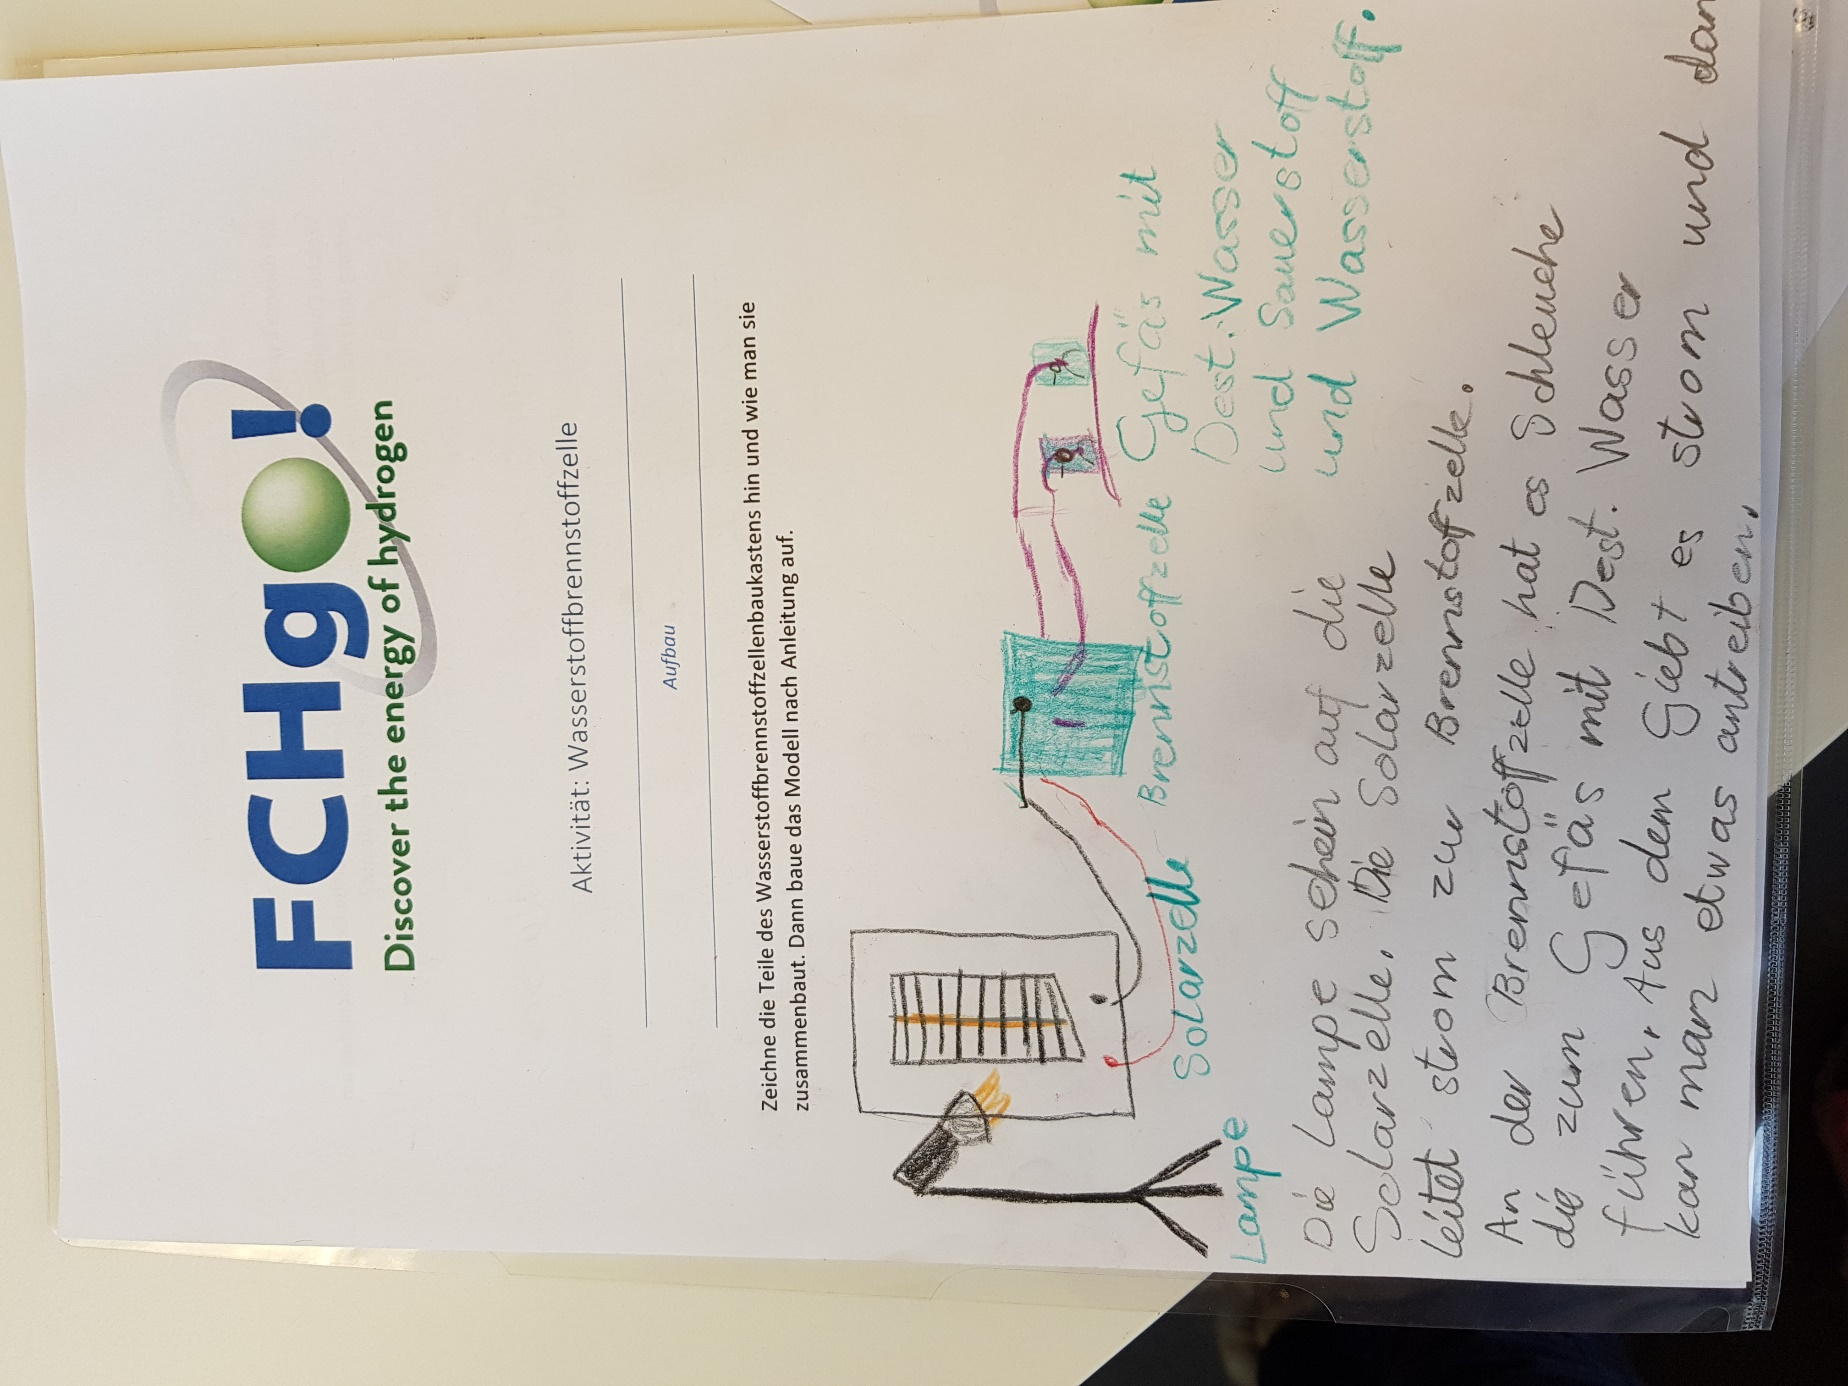 FCHgo!
Discover the energy of hydrogen
Aktivität: Wasserstoffbrennstoffzelle
Aufbau
Zeichne die Teile des Wasserstoffbrennstoffzellenbaukastens hin und wie man sie
zusammenbaut. Dann baue das Modell nach Anleitung auf.
Lampe
Solarzelle
Brennstoffzelle
Gefäs mit
Dest. Wasser
und Sauerstoff
und Wasserstoff.
Die Lampe schein auf die
Solarzelle. Die Solarzelle
leitet strom zur Brennstoffzelle.
An der Brennstoffzelle hat es Schleuche
die zum Gefäs mit Dest. Wasser
führen. Aus dem Giebt es strom und dan
kan man etwas antreiben.